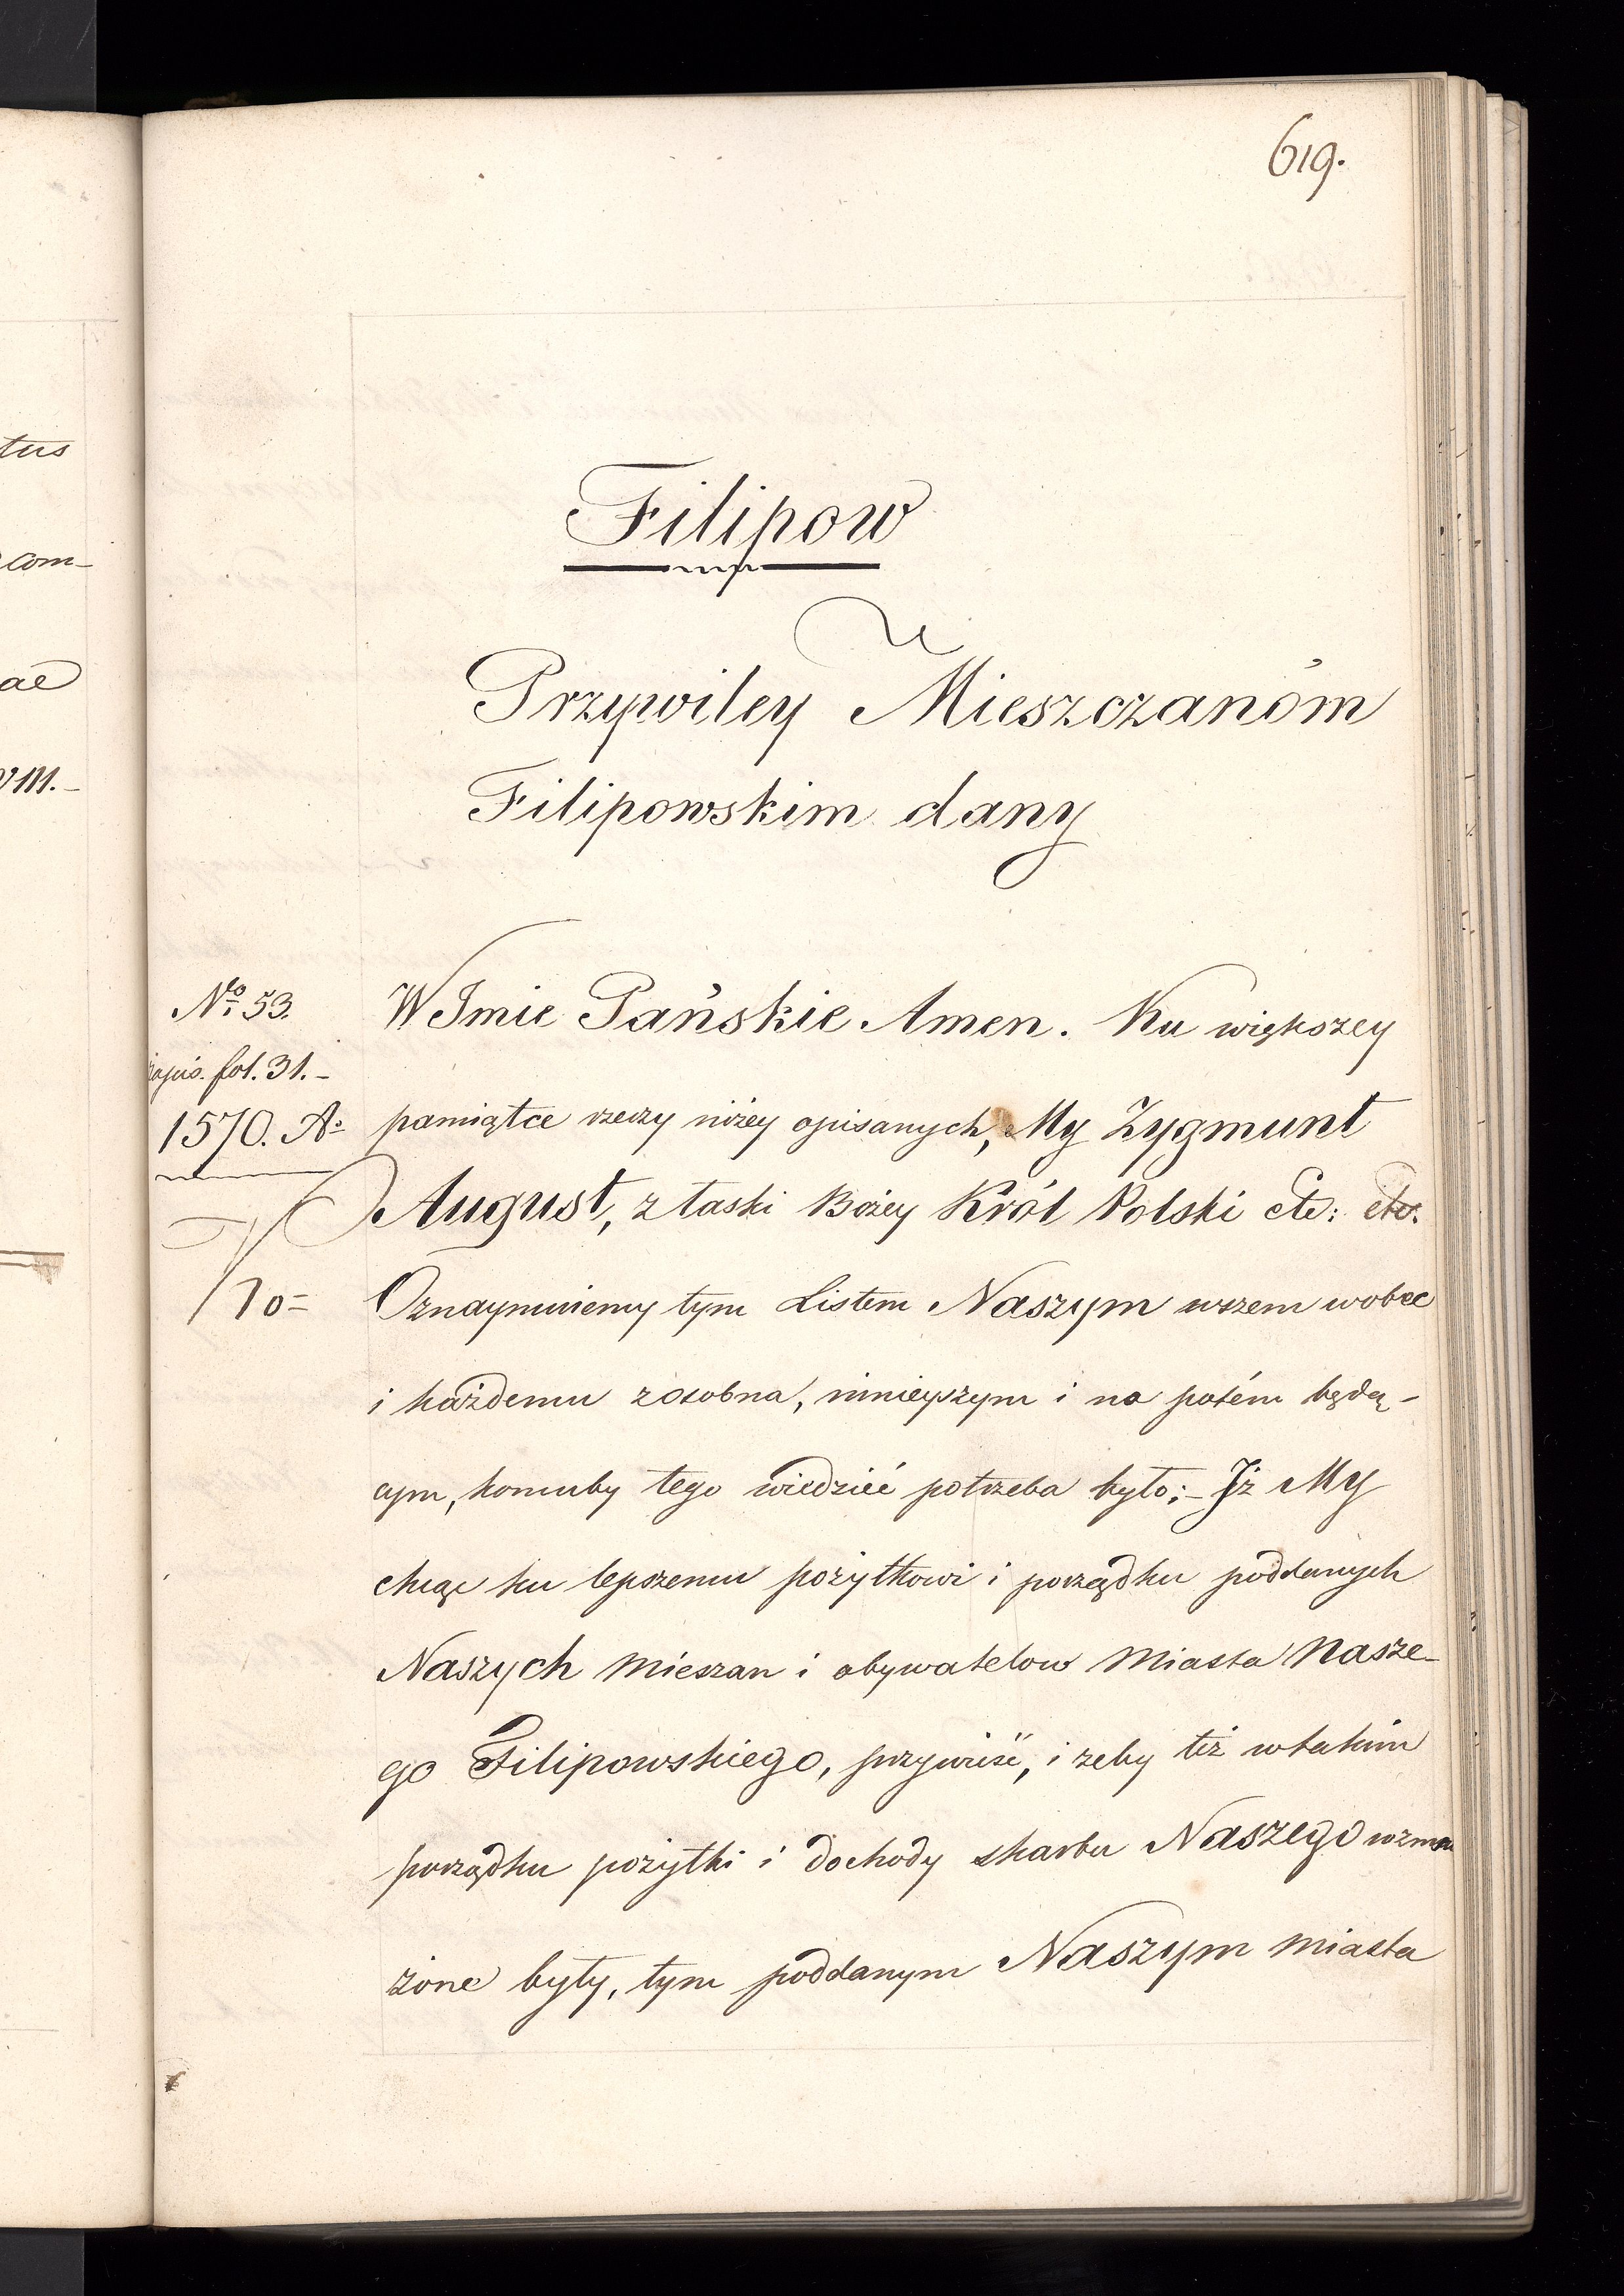 619.
tus
com-
ae
VIII.-
Filipow
Przywiley Mieszczanóm
Filipowskim dany
No. 53.
fol. 31.-
1570. Ao
10=
W Imie Pańskie Amen. Ku większey
pamiątce rzeczy niżey opisanych, My Zygmunt
August, z łaski Bożey Król Polski etc: etc.
Oznaymuiemy tym Listem Naszym wszem wobec
i każdemu zosobna, ninieyszym i na potém będą-
cym, komuby tego wiedzieć potrzeba było;- Iż My
chcąc ku lepszemu pożytkowi i porządku poddanych
Naszych Mieszan i obywatelow Miasta Nasze-
go Filipowskiego, przywieść, i żeby też wtakim
porządku pożytki i dochody skarbu Naszego wzmo
żone były, tym poddanym Naszym Miasta